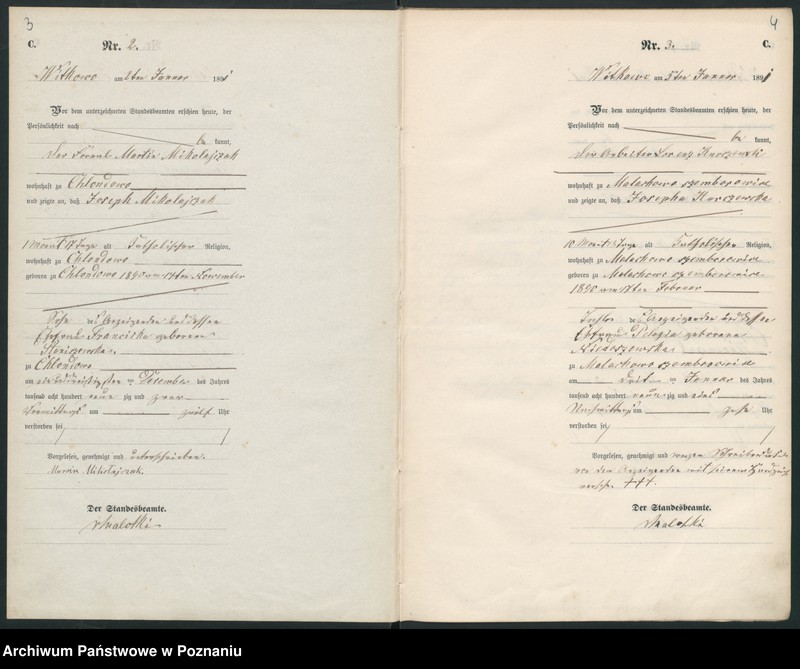 3
C.
Nr. 2.
Witkowo am 2ten Januar 1891
Vor dem unterzeichneten Standesbeamten erschien heute, der
Persönlichkeit nach
be kannt,
der Martin Mikolajczak
wohnhaft zu Chlondowo
und zeigte an, daß Joseph Mikolajczak
1 Monat 17 Tage alt katholischer Religion,
wohnhaft zu Chlondowo
geboren zu Chlondowo 1890 am 14ten November
Sohn des Anzeigenden und dessen
Ehefrau Franciska geborenen
zu Chlondowo
am ein und dreißigsten Dezember des Jahres
tausend acht hundert neun zig und
Vormittags um zwölf Uhr
verstorben sei
Vorgelesen, genehmigt und unterschrieben.
Marcin Mikołajczak.
Der Standesbeamte.
4
Nr. 3.
C.
Witkowo am 5ten Januar 1891
Vor dem unterzeichneten Standesbeamten erschien heute, der
Persönlichkeit nach
be kannt,
der Arbeiter Lorenz
wohnhaft zu Malachowo szemborowice
und zeigte an, daß Josepha
10 Monat Tage alt katholischer Religion,
wohnhaft zu Malachowo szemborowice
geboren zu Malachowo szemborowice
1890 am Februar
Tochter des Anzeigenden und dessen
Ehefrau Pelagia geborene
zu Malachowo szemborowice
am Januar des Jahres
tausend acht hundert neun zig und eins
Nachmittags um Uhr
verstorben sei
Vorgelesen, genehmigt und wegen
von dem Anzeigenden mit seinem Handzeichen
versehen +++.
Der Standesbeamte.
Archiwum Państwowe w Poznaniu